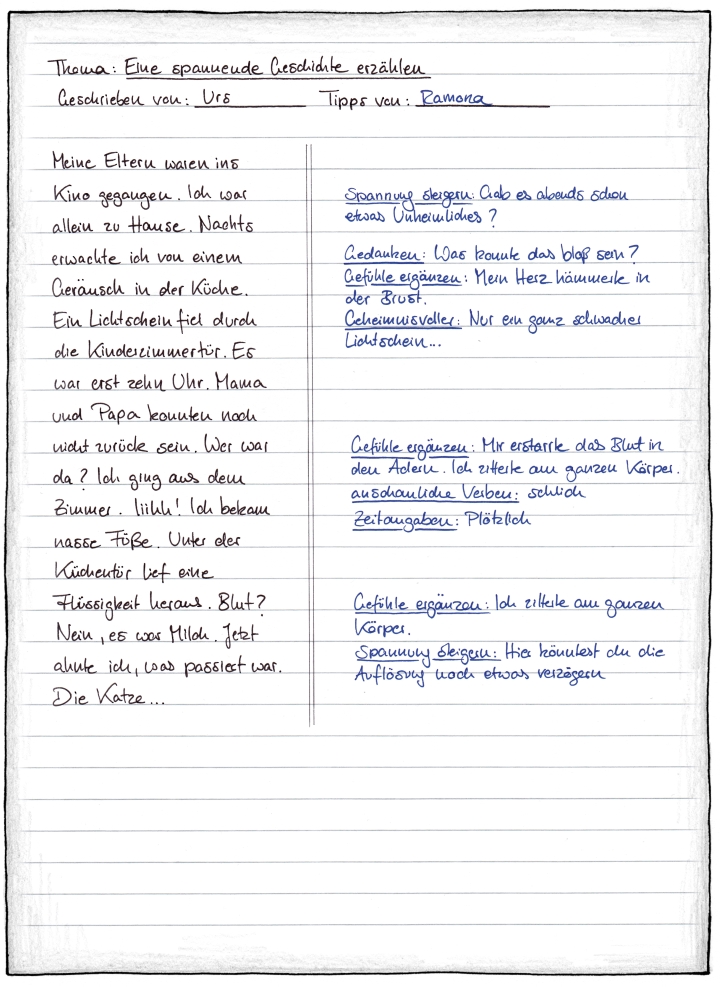 Thema: Eine spannende Geschichte erzählen
Geschrieben von: Urs Tipps von: Ramona
Meine Eltern waren ins
Kino gegangen. Ich war
allein zu Hause. Nachts
erwachte ich von einem
Geräusch in der Küche.
Ein Lichtschein fiel durch
die Kinderzimmertür. Es
war erst zehn Uhr. Mama
und Papa konnten noch
nicht zurück sein. Wer war
da? Ich ging aus dem
Zimmer. Iiihh! Ich bekam
nasse Füße. Unter der
Küchentür lief eine
Flüssigkeit heraus. Blut?
Nein, es war Milch. Jetzt
ahnte ich, was passiert war.
Die Katze...
Spannung steigern: Gab es abends schon
etwas Unheimliches?
Gedanken: Was konnte das bloß sein?
Gefühle ergänzen: Mein Herz hämmerte in
der Brust.
Geheimnisvoller: Nur ein ganz schwacher
Lichtschein...
Gefühle ergänzen: Mir erstarrte das Blut in
den Adern. Ich zitterte am ganzen Körper.
anschauliche Verben: schlich
Zeitangaben: Plötzlich
Gefühle ergänzen: Ich zitterte am ganzen
Körper.
Spannung steigern: Hier könntest du die
Auflösung noch etwas verzögern